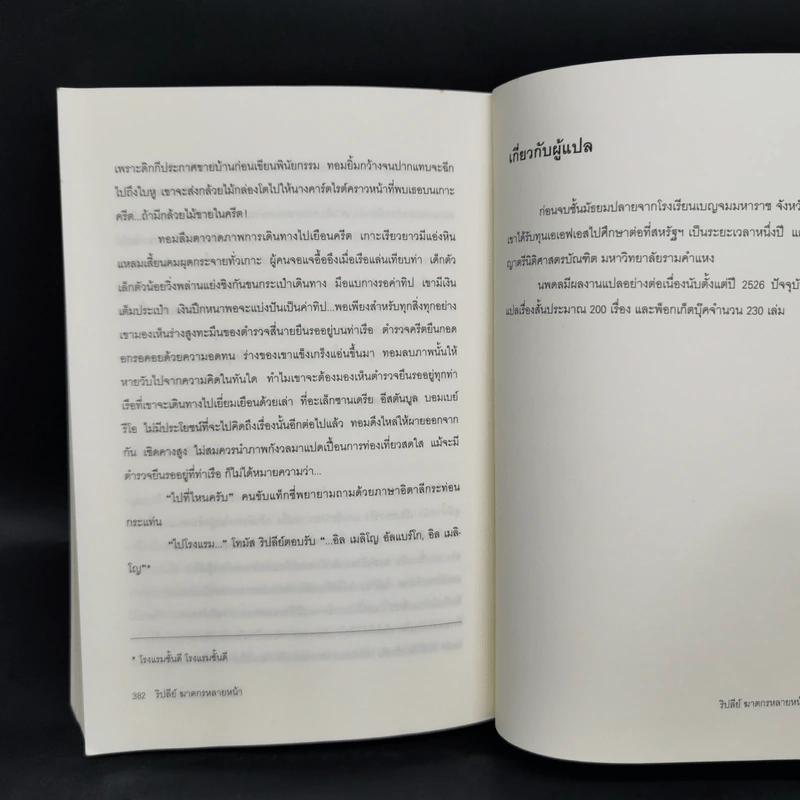 เพราะดิกกีประกาศขายบ้านก่อนเขียนพินัยกรรม ทอมยิ้มกว้างจนปากแทบจะฉีก
ไปถึงใบหู เขาจะส่งกล้วยไม้กล่องโตไปให้นางคาร์ตไรต์คราวหน้าที่พบเธอบนเกาะ
ครีต...ถ้ามีกล้วยไม้ขายในครีต!
ทอมลืมตาวาดภาพการเดินทางไปเยือนครีต เกาะเรียวยาวมีแอ่งหิน
แหลมเสี้ยนคมผุดกระจายทั่วเกาะ ผู้คนจอแจอื้ออึงเมื่อเรือแล่นเทียบท่า เด็กตัว
เล็กตัวน้อยวิ่งพล่านแย่งชิงกันขนกระเป๋าเดินทาง มือแบกางรอค่าทิป เขามีเงิน
เต็มประเป๋า เงินปึกหนาพอจะแบ่งปันเป็นค่าทิป...พอเพียงสำหรับทุกสิ่งทุกอย่าง
เขามองเห็นร่างสูงทะมึนของตำรวจสี่นายยืนรออยู่บนท่าเรือ ตำรวจครีตยืนกอด
อกรอคอยด้วยความอดทน ร่างของเขาแข็งเกร็งแอ่นขึ้นมา ทอมลบภาพนั้นให้
หายวับไปจากความคิดในทันใด ทำไมเขาจะต้องมองเห็นตำรวจยืนรออยู่ทุกท่า
เรือที่เขาจะเดินทางไปเยี่ยมเยือนด้วยเล่า ที่อะเล็กซานเดรีย อีสตันบูล บอมเบย์
รีโอ ไม่มีประโยชน์ที่จะไปคิดถึงเรื่องนั้นอีกต่อไปแล้ว ทอมดึงไหล่ให้ผายออกจาก
กัน เชิดคางสูง ไม่สมควรนำภาพกังวลมาแปดเปื้อนการท่องเที่ยวสดใส แม้จะมี
ตำรวจยืนรออยู่ที่ท่าเรือ ก็ไม่ได้หมายความว่า...
“ไปที่ไหนครับ” คนขับแท็กซี่พยายามถามด้วยภาษาอิตาลีกระท่อน
กระแท่น
“ไปโรงแรม...” โทมัส ริปลีย์ตอบรับ “...อิล เมลิโญ อัลแบร์โก, อิล เมลิ-
โญ”*
* โรงแรมชั้นดี โรงแรมชั้นดี
382 ริปลีย์ ฆาตกรหลายหน้า
เกี่ยวกับผู้แปล
ก่อนจบชั้นมัธยมปลายจากโรงเรียนเบญจมมหาราช จังหวั
เขาได้รับทุนเอเอฟเอสไปศึกษาต่อที่สหรัฐฯ เป็นระยะเวลาหนึ่งปี
ญาตรีนิติศาสตรบัณฑิต มหาวิทยาลัยรามคำแหง
นพดลมีผลงานแปลอย่างต่อเนื่องนับตั้งแต่ปี 2526 ปัจจุบั
แปลเรื่องสั้นประมาณ 200 เรื่อง และพ็อกเก็ตบุ๊คจำนวน 230 เล่ม
ริปลีย์ ฆาตกรหลายหน้